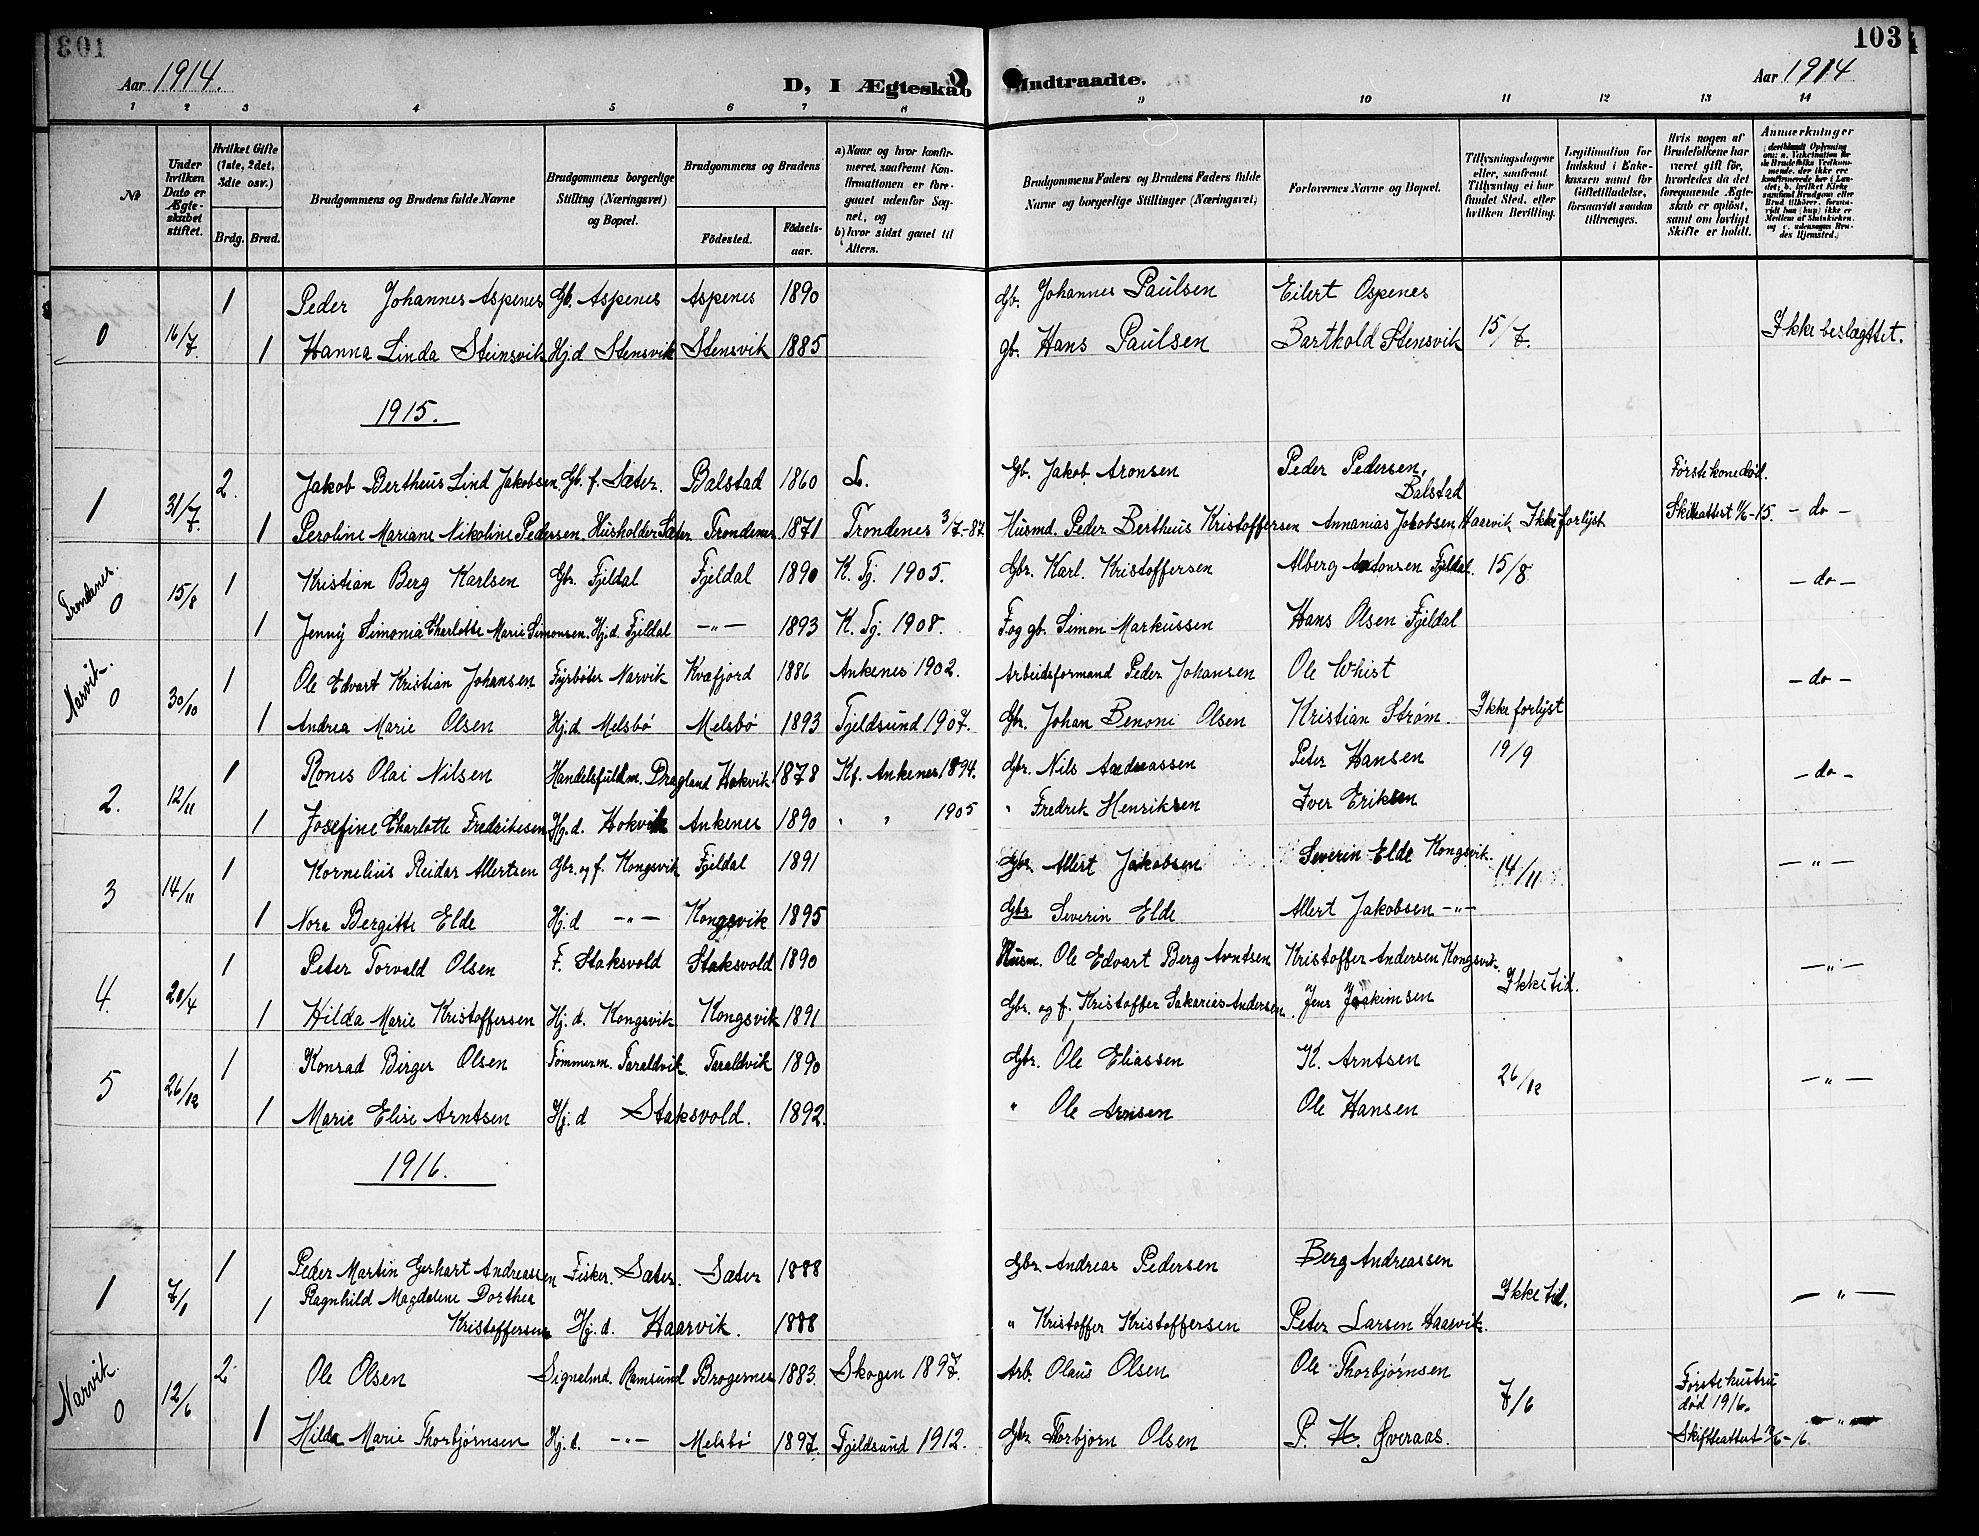 103
Aar 1914.
D, I Ægteskab Indtraadte.
Aar 1914
103
1 2 3 4 5 6 7 8 9 10 11 12 13 14
No
Under hvilken Dato er Ægteskabet stiftet.
Hvilket Gifte (1ste, 2det, 3die osv.)
Brdg. Brud.
Brudgommens og Brudens fulde Navne
Brudgommens borgerlige Stilling (Næringsvei) og Bopæl.
Brudgommens og Brudens
Fødested. Fødselsaar.
a) Naar og hvor konfirmeret, saafremt Konfirmationen er foregaaet udenfor Sognet, og
b) hvor sidst gaaet til Alters.
Brudgommens Faders og Brudens Faders fulde Navne og borgerlige Stillinger (Næringsvei)
Forlovernes Navne og Bopæl.
Tillysningsdagene eller, saafremt Tillysning ei har fundet Sted, efter hvilken Bevilling.
Legitimation for Indskud i Enkekassen samt for Giftetilladelse, forsaavidt saadan tiltrænges.
Hvis nogen af Brudefolkene har været gift før, hvorledes da det foregaaende Ægteskab er opløst, samt om lovligt Skifte er holdt.
Anmerkninger
0 16/7. 1 Peder Johannes Aspenes Gb. Aspenes Aspenes 1890 Gb. Johannes Paulsen Eilert Ospenes
1 Hanna Linda Steinsvik Hj.d Stensvik Stensvik 1885 gb. Hans Paulsen Barthold Stensvik 15/7. Ikke beslægttet.
1915.
1 31/7. 2. Jakob Bertheus Lind Jakobsen Gb. f. Sæter. Balstad 1860 L. Gb. Jakob Aronsen Peder Pedersen, Balstad Første kone død.
1 Peroline Mariane Nikoline Pedersen. Husholder Sæter Trondenes 1871 Trondenes 3/7.-87. Husmd. Peder Bertheus Kristoffersen Annanias Jakobsen Haarvik Ikke forlyst -15. - do -
Trondenes. 0 15/8 1 Kristian Berg Karlsen Gbr. Fjeldal Fjeldal 1890 K. Fj. 1905. Gbr. Karl. Kristoffersen Alberg Antonsen Fjeldal. 15/8 - do -
1 Jenny Simonia Charlotte Marie Simonsen. Hj.d. Fjeldal -"- 1893 K. Fj. 1908. F. og gb. Simon Markussen Hans Olsen Fjeldal
Narvik. 0 30/10 1 Ole Edvart Kristian Johansen Fyrbøter Narvik Kvæfjord 1886 Ankenes 1902. Arbeidsformand Peder Johansen Ole Whist - do -
1 Andrea Marie Olsen Hj.d Melsbø Melsbø 1893 Fjeldsund 1907. Gbr. Johan Benoni Olsen Kristian Strøm. Ikke forlyst
2. 12/11 1 Rones Olai Nilsen Handelsfuldm. Dragland Hokvik 1878 Kf. Ankenes 1894. Gbr. Nils Andreassen Peter Hansen 19/9 - do -
1 Josefine Charlotte Fredriksen Hj.d. Hokvik Ankenes 1890 " " 1905 " Fredrik Henriksen Iver Eriksen
3 14/11 1 Kornelius Reidar Allertsen Gbr. og f. Kongsvik Fjeldal 1891 Gbr. Allert Jakobsen Severin Elde Kongsvik. 14/11 - " -
1 Nora Bergitte Elde Hj.d -"- Kongsvik 1895 Gbr Severin Elde Allert Jakobsen -"-
4. 20/4 1 Peter Torvald Olsen F. Staksvold Staksvold 1890 Husm. Ole Edvart Berg Arntsen Kristoffer Andersen Kongsvik. Ikke tid. - " -
1 Hilda Marie Kristoffersen Hj.d. Kongsvik Kongsvik 1891 Gbr. og f. Kristoffer Sakarias Andersen. Jens Joakimsen
5 26/12 1 Konrad Birger Olsen Tømmerm. Taraldvik. Taraldvik 1890 Gbr. Ole Eliassen K. Arntsen 26/12 - " -
1 Marie Elise Arntsen Hj.d Staksvold. 1892. " Ole Arnsen Ole Hansen
1916.
1 7/1 1 Peder Martin Gerhart Andreassen Fisker. Sæter. Sæter 1888 Gbr. Andreas Pedersen Berg Andreassen Ikke tid. - " -
1 Ragnhild Magdalene Dorthea
Kristoffersen Hj.d. Haarvik. 1888 " Kristoffer Kristoffersen Peter Larsen Haarvik.
Narvik. 0 12/6 2. Ole Olsen Signalmd. Ramsund Brogernes 1883. Skogen 1897. Arb. Olaus Olsen Ole Thorbjørnsen 7/6 Første hustru død 1916.
1 Hilda Marie Thorbjørnsen Hj.d. -"- Melsbø 1897. Fjeldsund 1912. Gbr. Thorbjørn Olsen P. K. Øveraas. Skifteattest -16. - " -